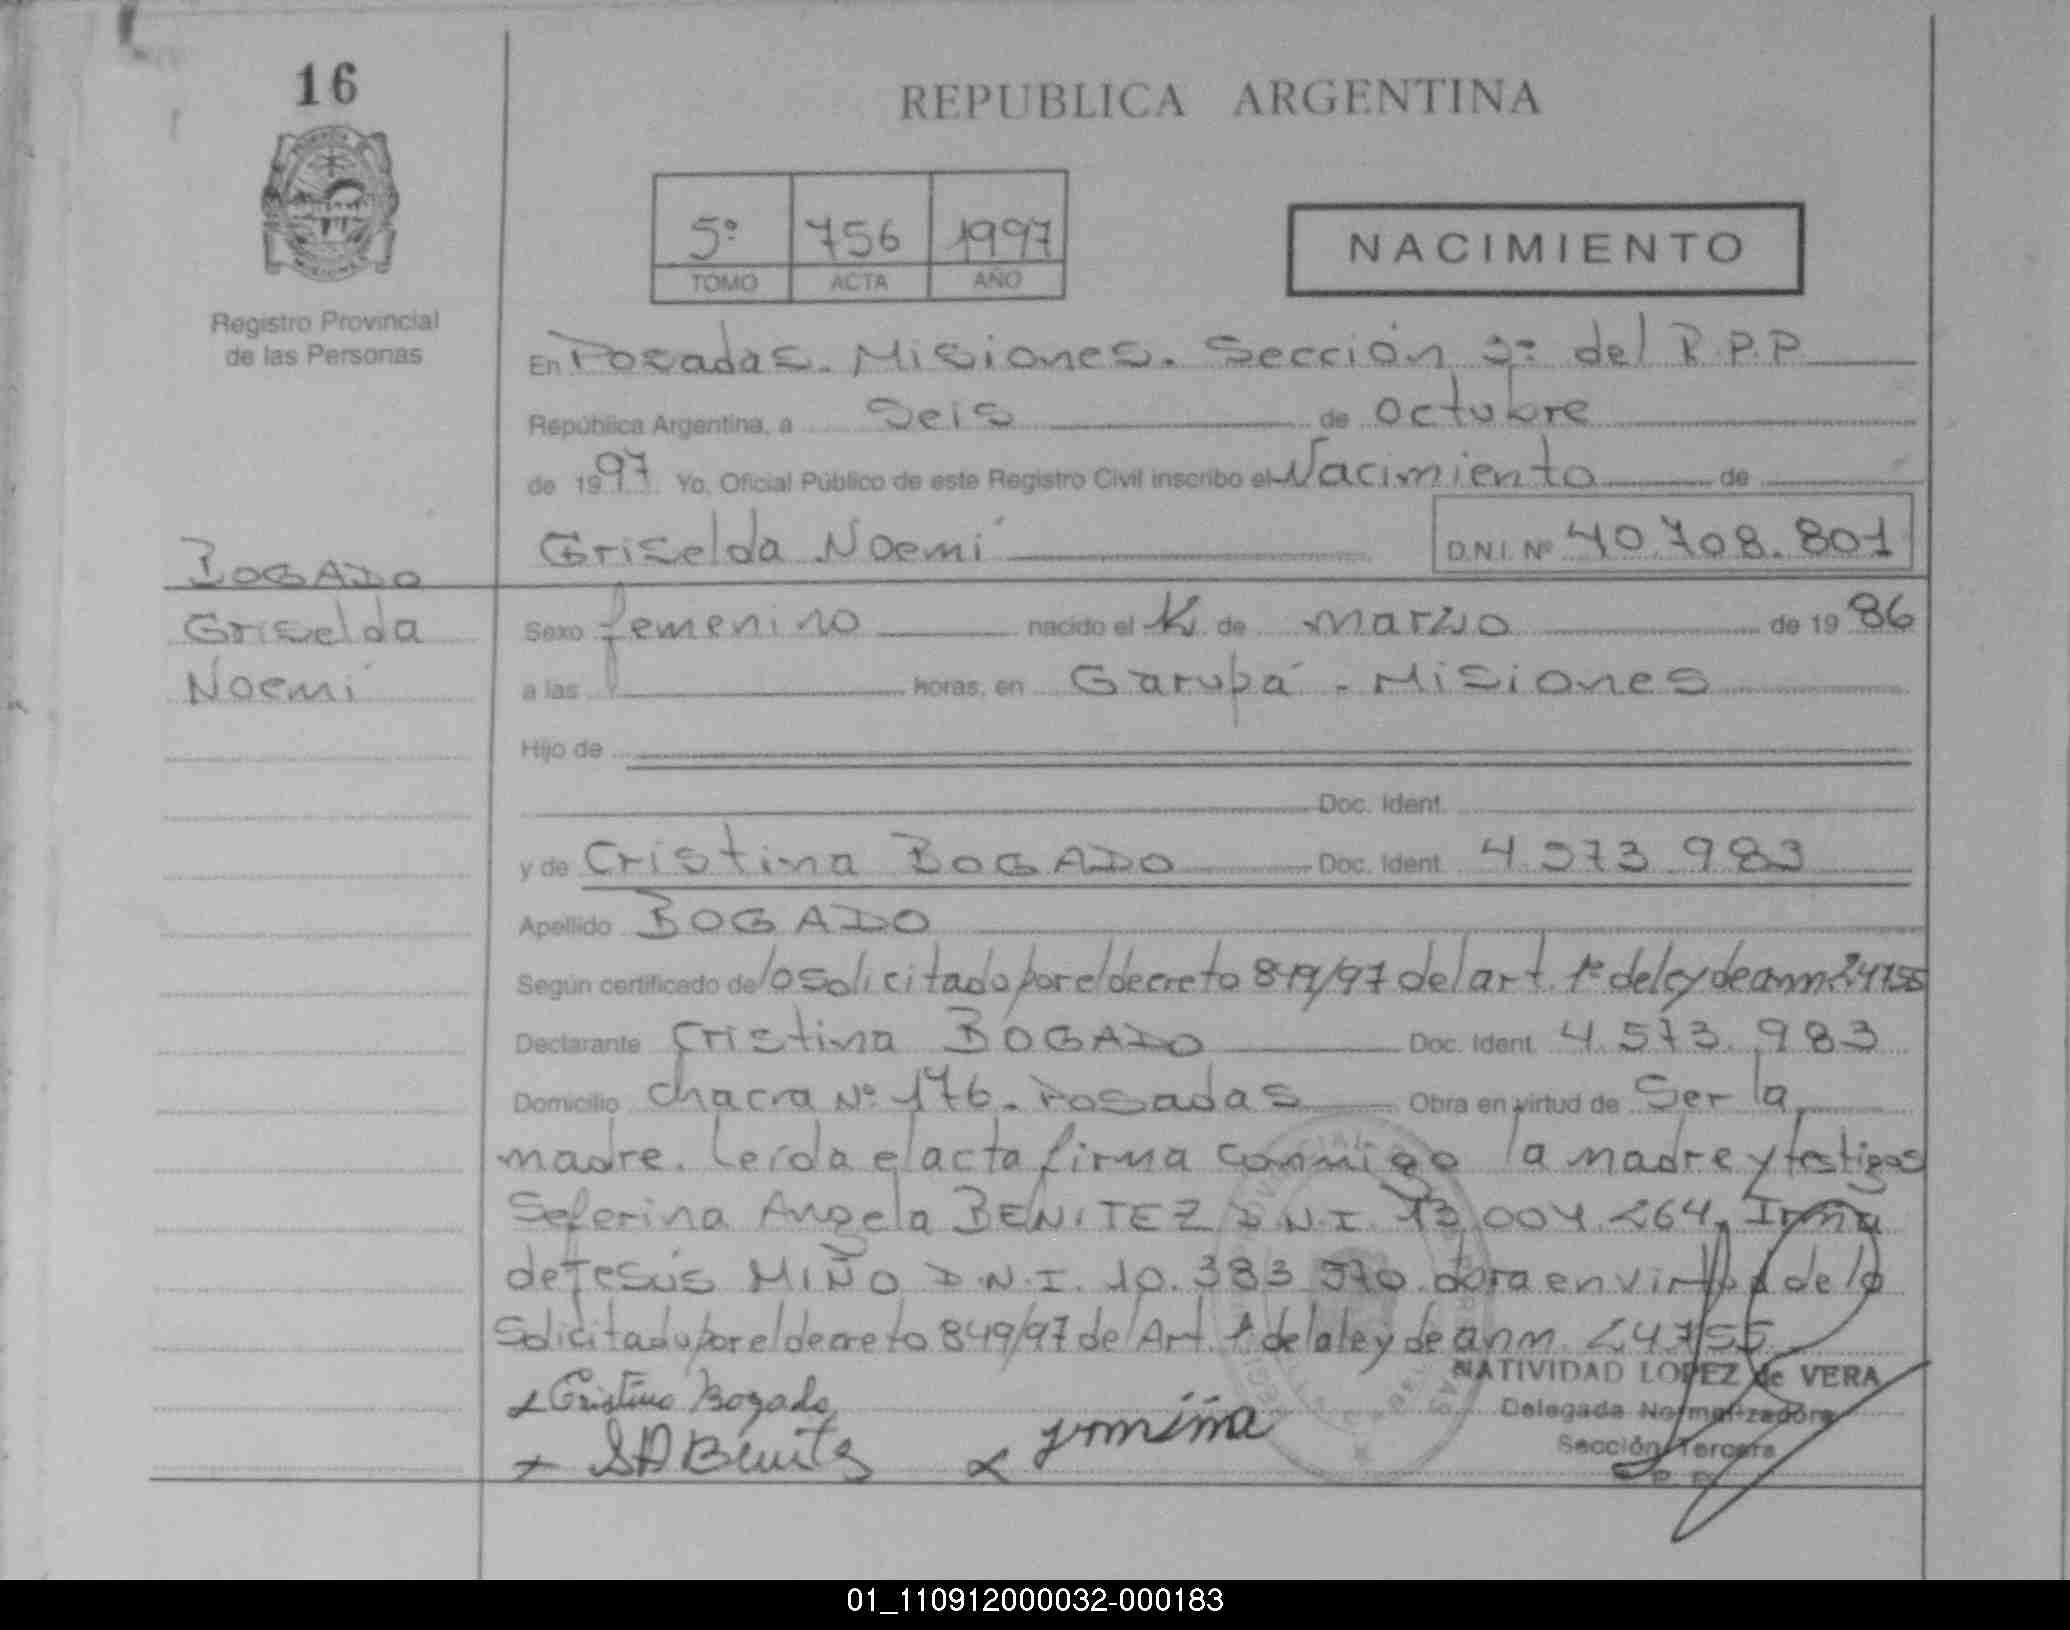 16
REPUBLICA ARGENTINA
5º 756 1997
TOMO ACTA AÑO
NACIMIENTO
Registro Provincial
de las Personas
En Posadas. Misiones. Sección 3º del R.P.P
República Argentina, a Seis de Octubre
de 1997 Yo, Oficial Público de este Registro Civil inscribo el Nacimiento de
Griselda Noemí D.N.I. Nº 40.708.801
BOGADO
Griselda
Noemí
Sexo femenino nacido el de marzo de 1986
a las horas, en Garupá - Misiones
Hijo de
Doc. Ident.
y de Cristina BOGADO Doc. Ident. 4.573.983
Apellido BOGADO
Según certificado de lo solicitado por el decreto 849/97 del art. 1º de ley de amn. 24755
Declarante Cristina BOGADO Doc. Ident. 4.573.983
Domicilio Chacra Nº 176. Posadas Obra en virtud de Ser la
madre. Leída el acta firma conmigo la madre y testigos
Seferina Angela BENITEZ D.N.I. 13.004.264, Irma
de Jesús MIÑO D.N.I. 10.383.570. obra en virtud de lo
Solicitado por el decreto 849/97 del Art. 1º de la ley de amn. 24755
Cristina Bogado
NATIVIDAD LOPEZ de VERA
Delegada Normalizadora
Sección Tercera
SABenitez
01_110912000032-000183